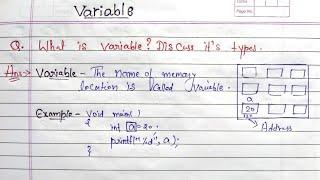 Variable
Q. What is variable? Discuss it's types.
Ans → Variable - The name of memory
location is called variable.
Example - Void main()
{
int a = 20;
printf("%d", a);
}
a
20
Address